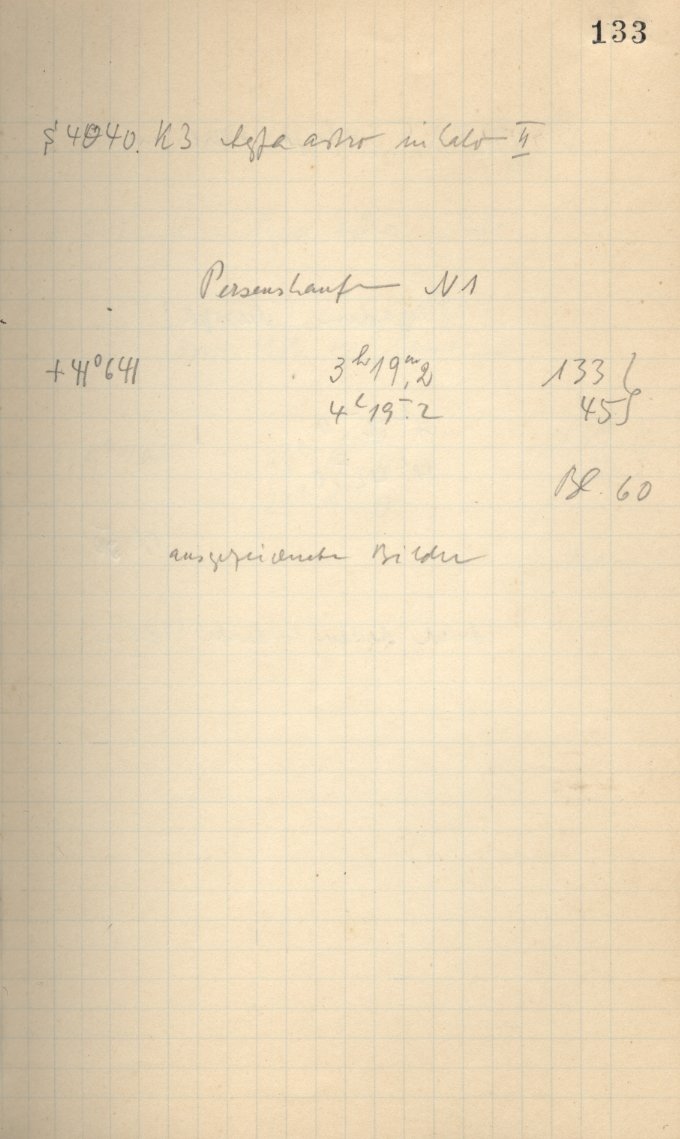 133
§ 4040. K3 Agfa astro II
Perseushaufen N1
+41°641 3h19m,2 133
4h19m.2 45
Bl. 60
ausgezeichnete Bilder